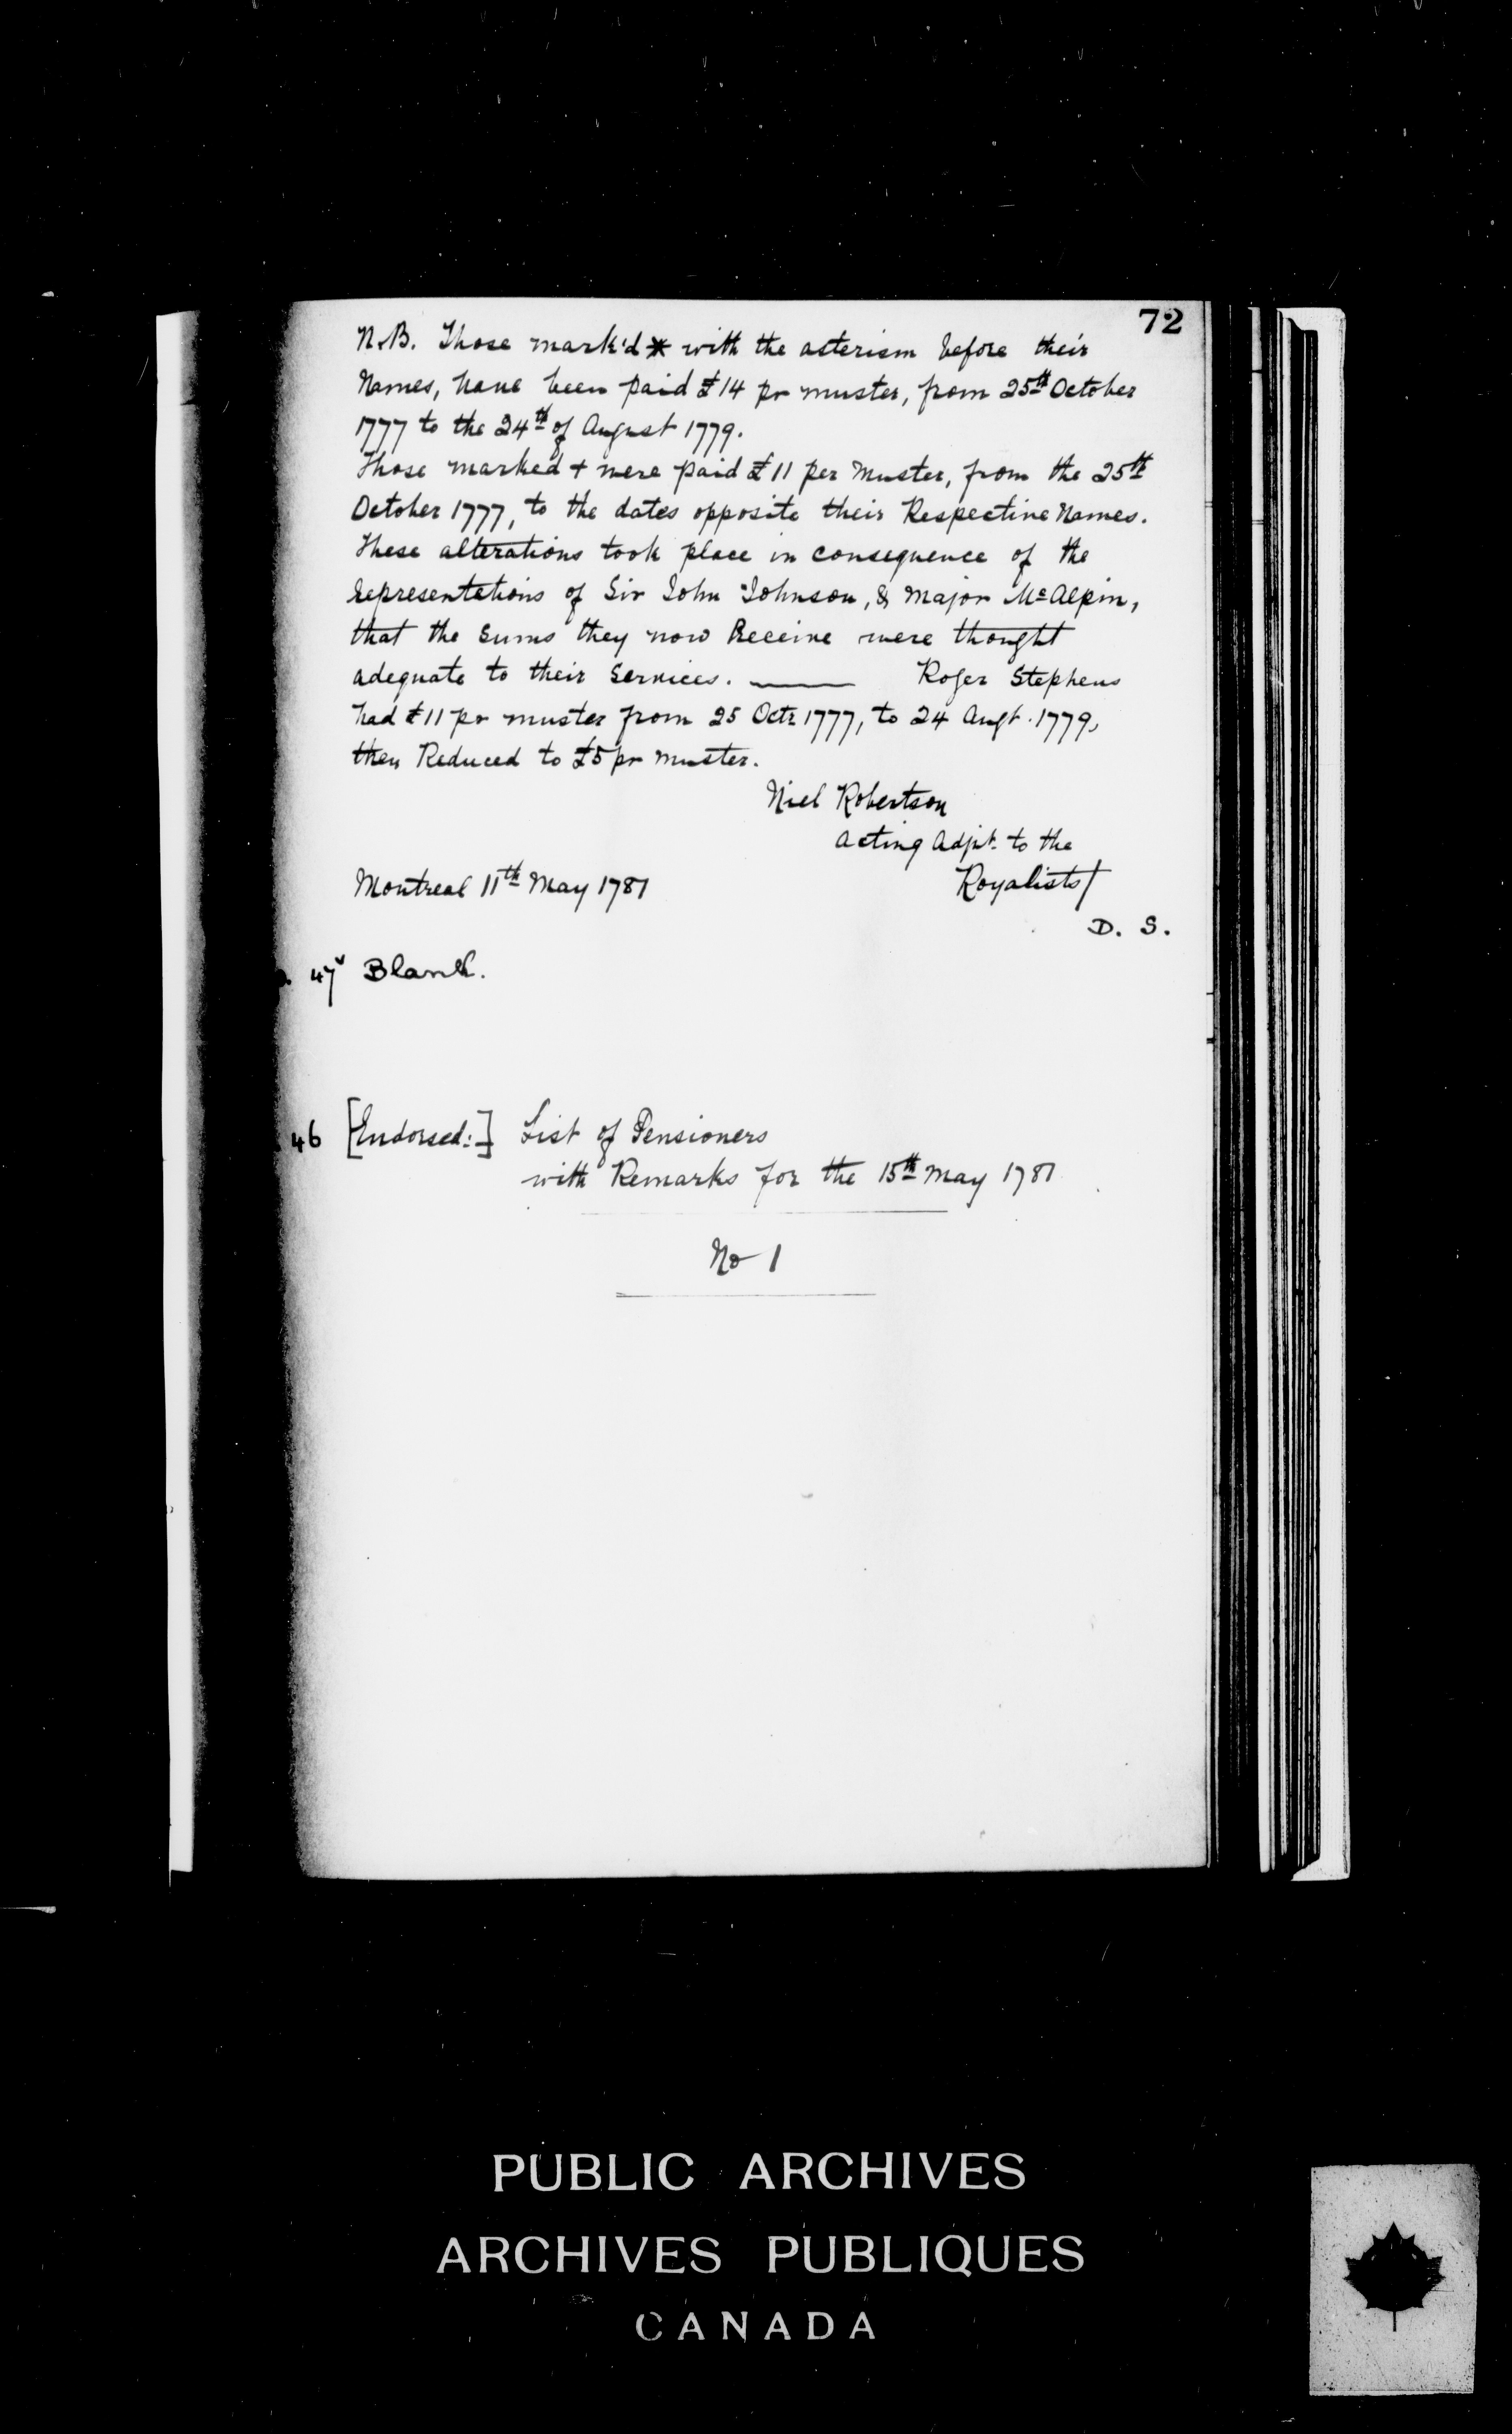 72
N.B. Those mark'd * with the asterism before their
Names, have been paid £14 pr muster, from 25th October
1777 to the 24th of August 1779.
Those marked + were paid £11 per Muster, from the 25th
October 1777, to the dates opposite their Respective Names.
These alterations took place in consequence of the
representations of Sir John Johnson, & Major McAlpin,
that the Sums they now Receive were thought
adequate to their Services. —— Roger Stephens
had £11 pr muster from 25 Octr 1777, to 24 Augt. 1779,
then Reduced to £5 pr muster.
Niel Robertson
Acting Adjt. to the
Montreal 11th May 1781 Royalists
D. S.
47v Blank.
46 [Endorsed:] List of Pensioners
with Remarks for the 15th May 1781
No 1
PUBLIC ARCHIVES
ARCHIVES PUBLIQUES
CANADA